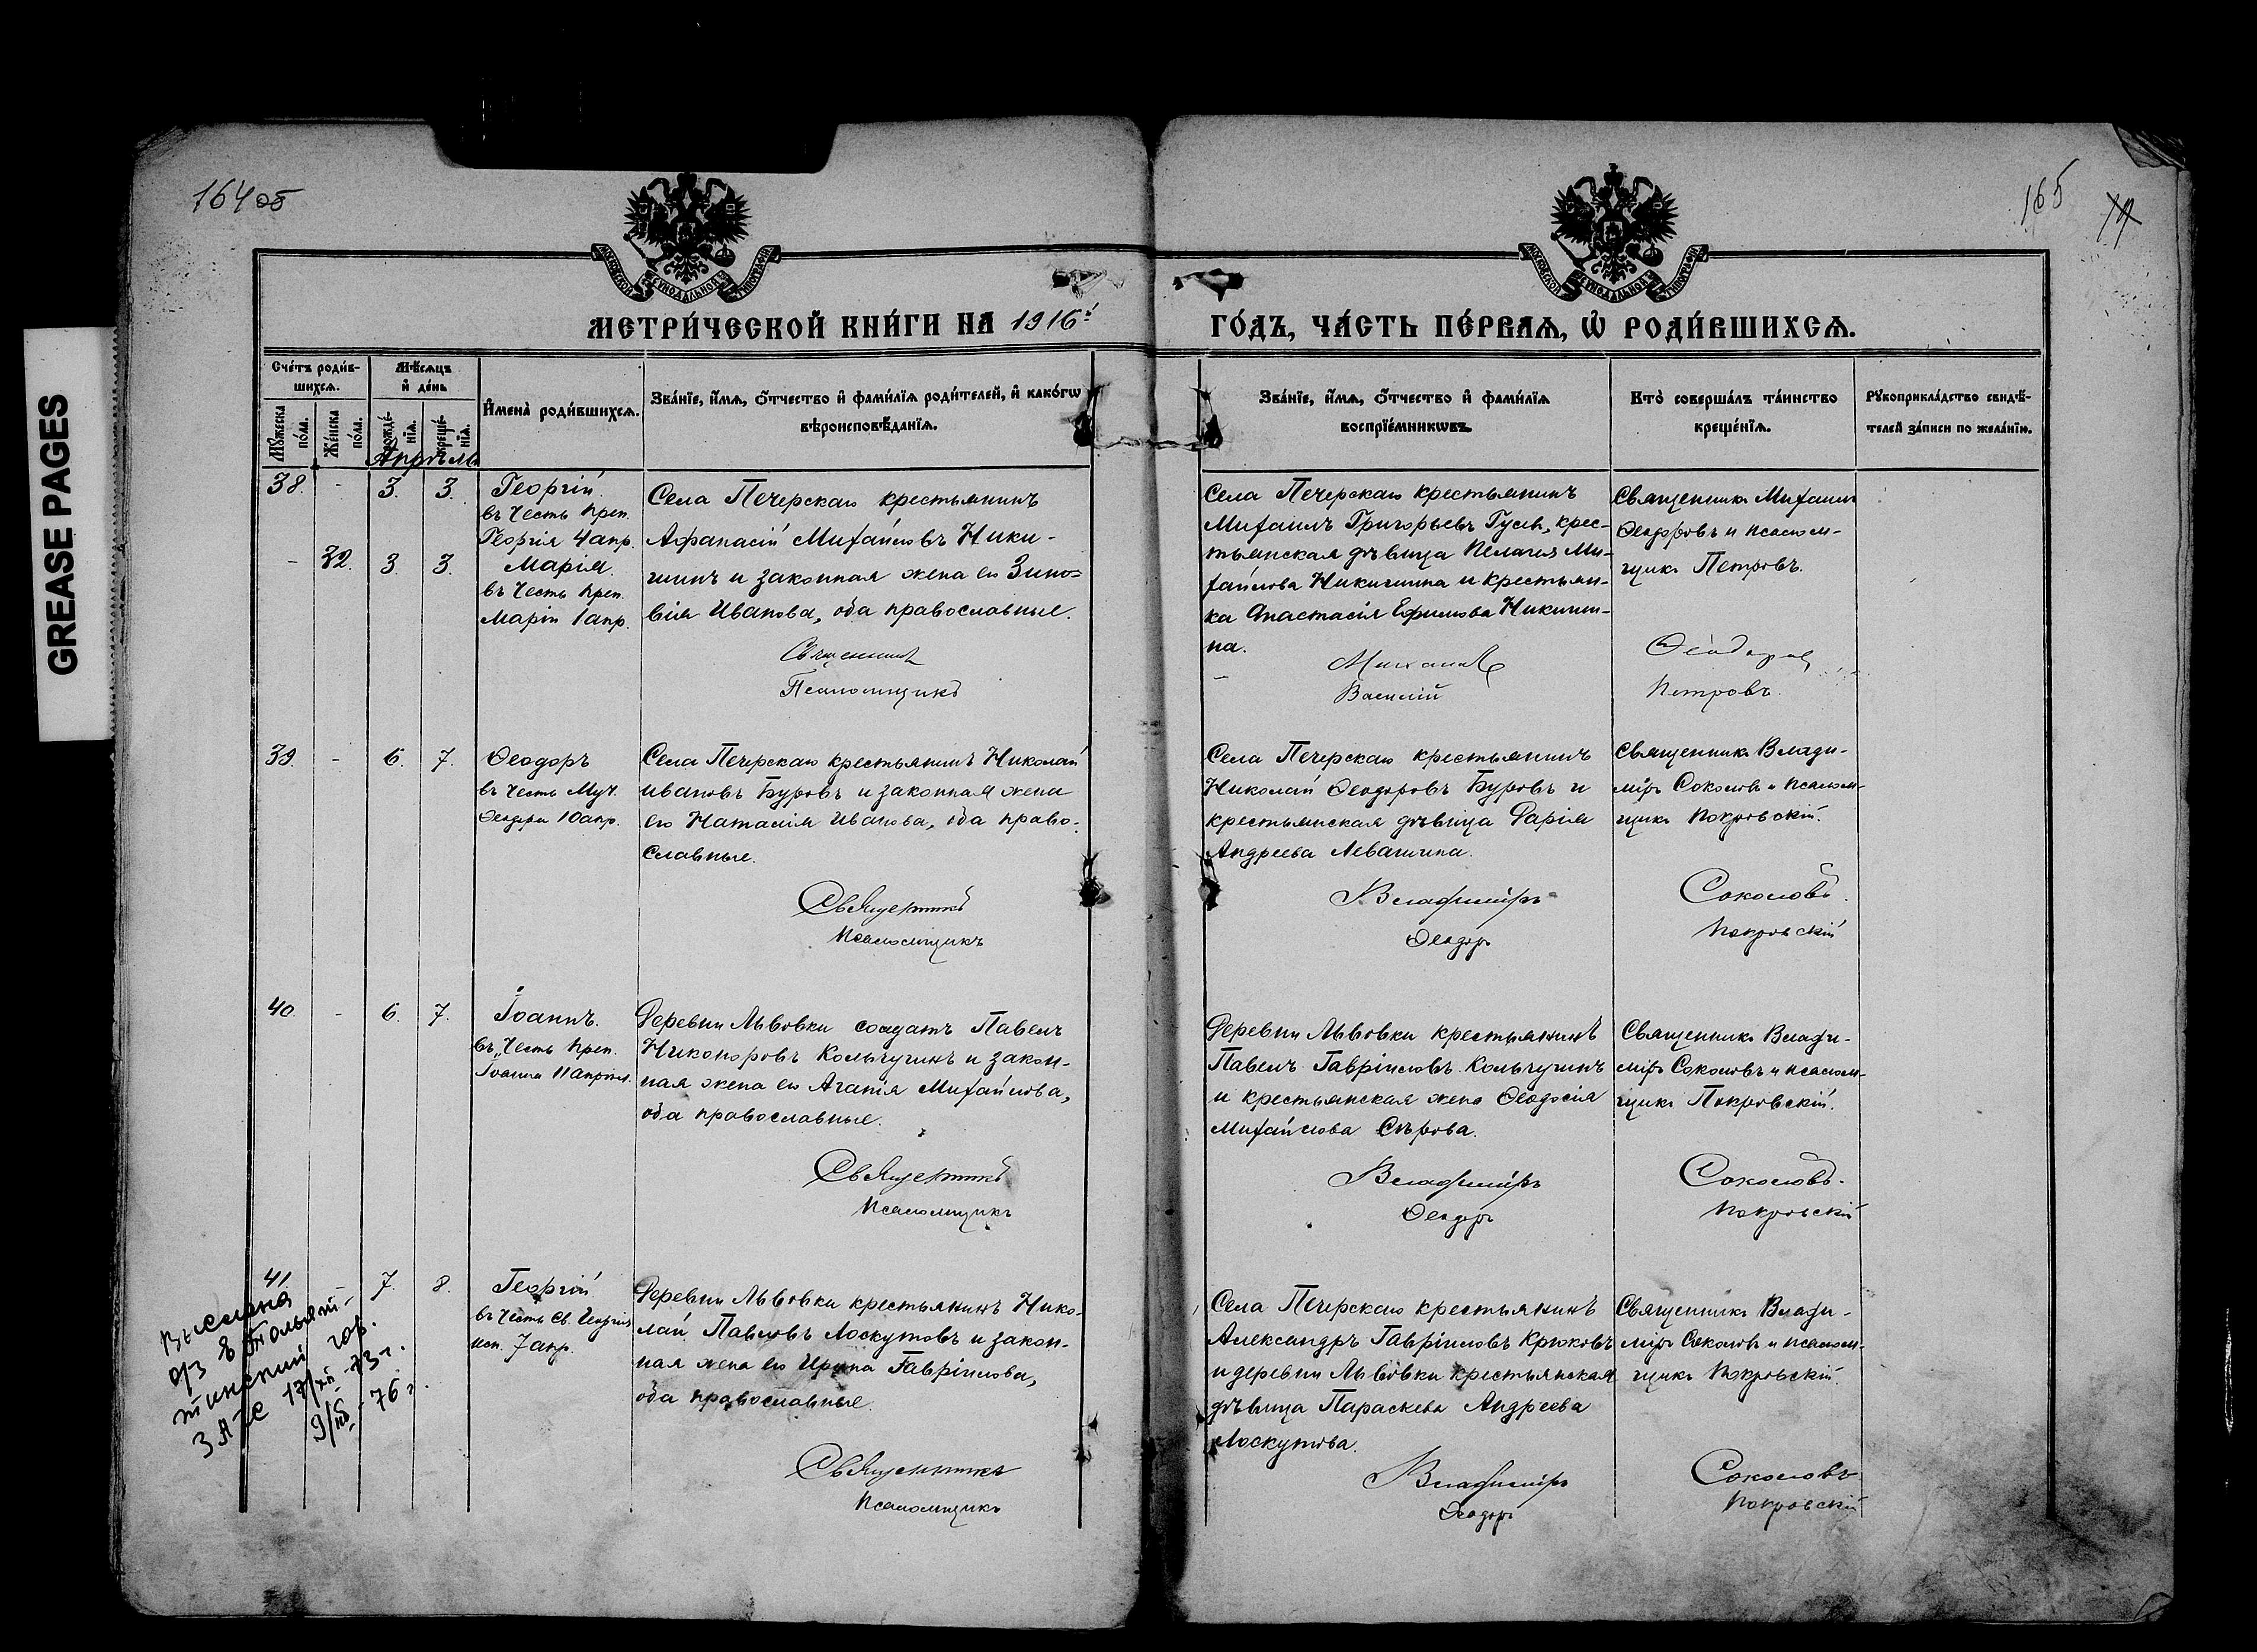 GREASE PAGES
164 об
165
МОСКОВСКОЙ СѴНОДАЛЬНОЙ ТИПОГРАФІИ
МОСКОВСКОЙ СѴНОДАЛЬНОЙ ТИПОГРАФІИ
МЕТРИ́ЧЕСКОЙ КНИ́ГИ НА 1916й
ГО́ДЪ, ЧА́СТЬ ПЕ́РВАѦ, Ѡ РОДИ́ВШИХСѦ.
Сче́тъ роди́в-
шихсѧ.
Мꙋ́жеска по́ла.
Же́нска по́ла.
Мѣ́сѧцъ
и҆ де́нь
рожде́-
нїѧ.
креще́-
нїѧ.
И҆мена̀ роди́вшихсѧ.
Зва́нїе, и҆́мѧ, ѻ҆́тчество и҆ фами́лїѧ роди́телей, и҆ како́гѡ
вѣроисповѣ́данїѧ.
Зва́нїе, и҆́мѧ, ѻ҆́тчество и҆ фами́лїѧ
воспрїе́мникѡвъ.
Кто̀ соверша́лъ та́инство
креще́нїѧ.
Рꙋкоприкла́дство свидѣ́-
телей за́писи по жела́нїю.
Апрѣль
38. - 3. 3.
Георгій
въ честь преп.
Георгія 4 апр.
- 32. 3. 3.
Марія.
въ честь преп.
Маріи 1 апр.
Села Печерскаго крестьянинъ
Афанасій Михайловъ Ники-
шинъ и законная жена его Зино-
вія Иванова, оба православные.
Священникъ
Псаломщикъ
Села Печерскаго крестьянинъ
Михаилъ Григорьевъ Гусев, крес-
тьянская дѣвица Пелагія Ми-
хайлова Никишина и крестьян-
ка Анастасія Ефимова Никиши-
на.
Михаилъ
Василій
Священникъ Михаилъ
Ѳеодоровъ и псалом-
щикъ Петровъ.
Ѳеодоровъ
Петровъ.
39. - 6. 7.
Ѳеодоръ
въ честь Муч.
Ѳеодора 10 апр.
Села Печерскаго крестьянинъ Николай
Ивановъ Буровъ и законная жена
его Наталія Иванова, оба право-
славные.
Священникъ
Псаломщикъ
Села Печерскаго крестьянинъ
Николай Ѳеодоровъ Буровъ и
крестьянская дѣвица Дарія
Андреева Левашина.
Владиміръ
Ѳеодоръ
Священникъ Влади-
міръ Соколовъ и псалом-
щикъ Покровскій.
Соколовъ.
Покровскій
40. - 6. 7.
Іоаннъ.
въ честь преп.
Іоанна 11 апрѣл.
Деревни Львовки солдатъ Павелъ
Никоноровъ Кольчугинъ и закон-
ная жена его Агапія Михайлова,
оба православные.
Священникъ
Псаломщикъ
Деревни Львовки крестьянинъ
Павелъ Гавріиловъ Кольчугинъ
и крестьянская жена Ѳеодосія
Михайлова Сѣрова.
Владиміръ
Ѳеодоръ
Священникъ Влади-
міръ Соколовъ и псалом-
щикъ Покровскій.
Соколовъ.
Покровскій
41 - 7. 8.
Георгій
въ честь Св. Георгія
исп. 7 апр.
Деревни Львовки крестьянинъ Нико-
лай Павловъ Лоскутовъ и закон-
ная жена его Ирина Гавріилова,
оба православные.
Священникъ
Псаломщикъ
Села Печерскаго крестьянинъ
Александръ Гавріиловъ Крюковъ
и деревни Львовки крестьянская
дѣвица Параскева Андреева
Лоскутова.
Владиміръ
Ѳеодоръ
Священникъ Влади-
міръ Соколовъ и псалом-
щикъ Покровскій.
Соколовъ
Покровскій
Выслана
в Тольят-
тинский гор.
ЗАГС 17/XII-73 г.
76 г.